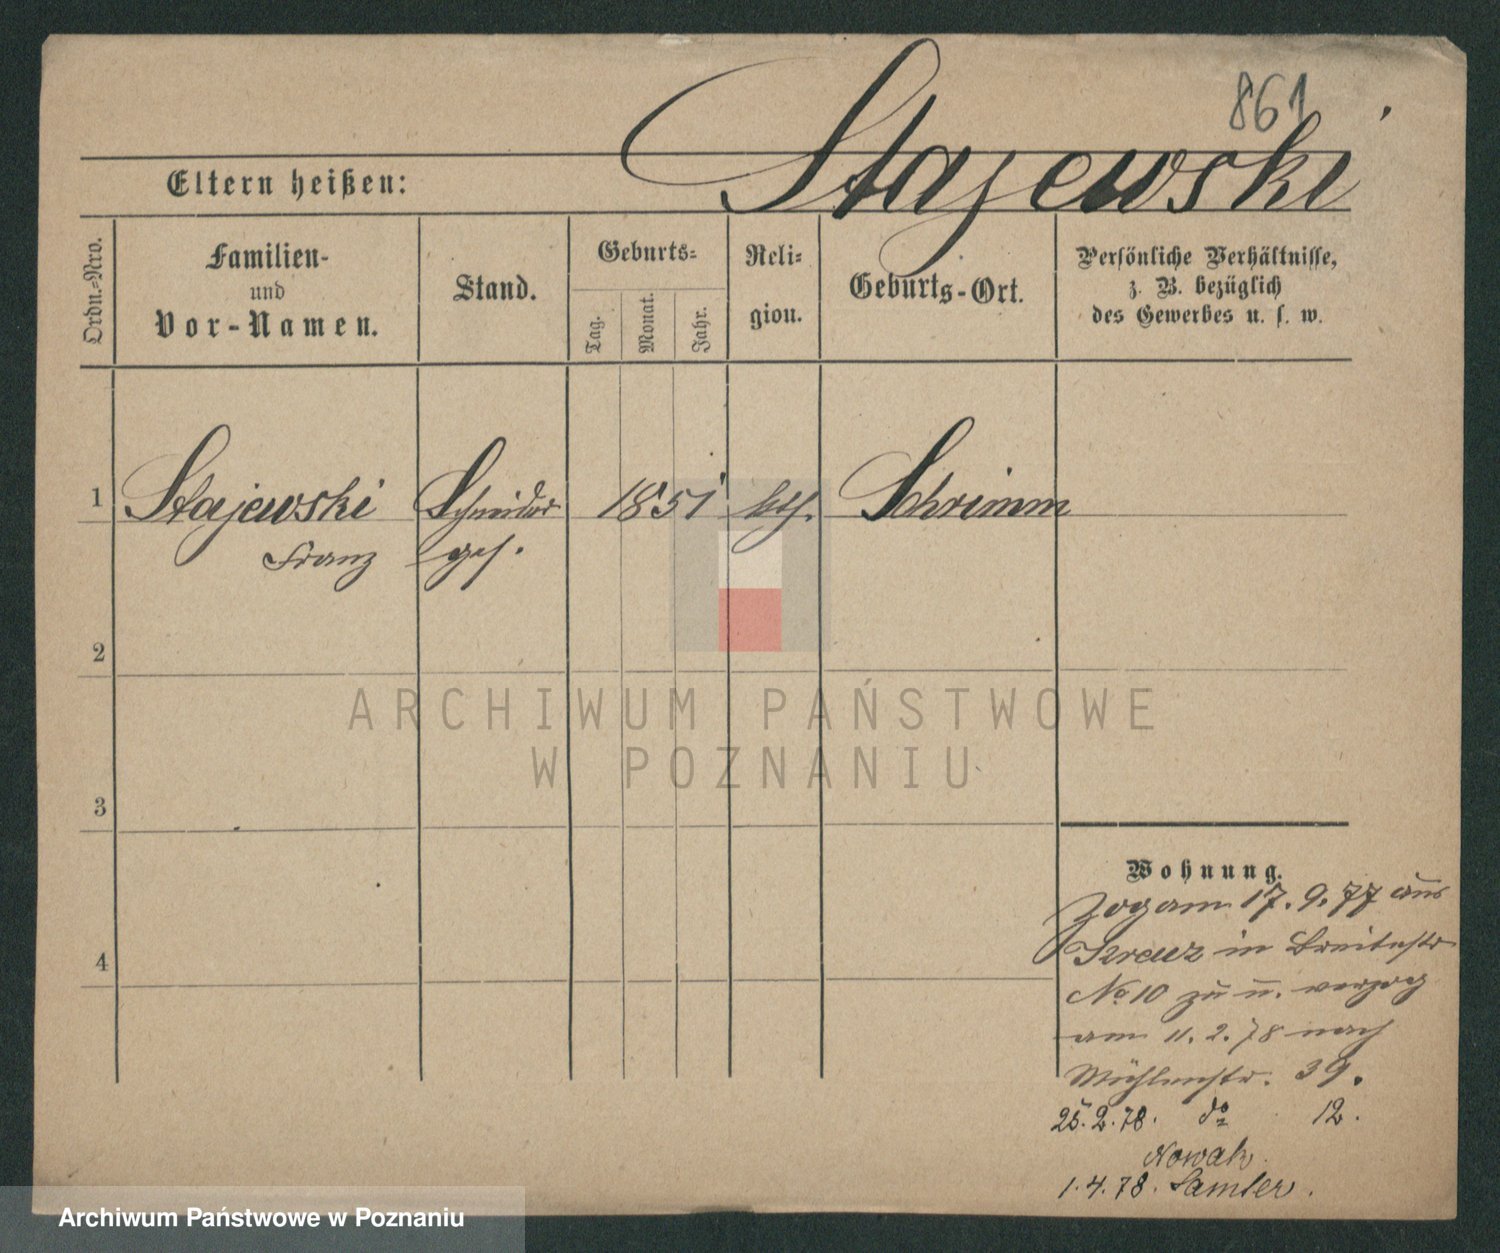 861
Stajewski
Eltern heißen:
Ordn.-Nro.
Familien-
und
Vor-Namen.
Stand.
Geburts-
Tag.
Monat.
Jahr.
Reli-
gion.
Geburts-Ort.
Persönliche Verhältnisse,
z. B. bezüglich
des Gewerbes u. s. w.
1 Stajewski Schneider 1851 kth. Schrimm
Franz ges.
2
ARCHIWUM PAŃSTWOWE
W POZNANIU
3
Wohnung.
4
Zog am 17. 9. 77 aus
Kreuz in Breitestr
No 10 zu u. verzog
am 11. 2. 78 nach
Mühlenstr. 39.
25. 2. 78. do 12.
Nowak.
1. 4. 78. Samter.
Archiwum Państwowe w Poznaniu